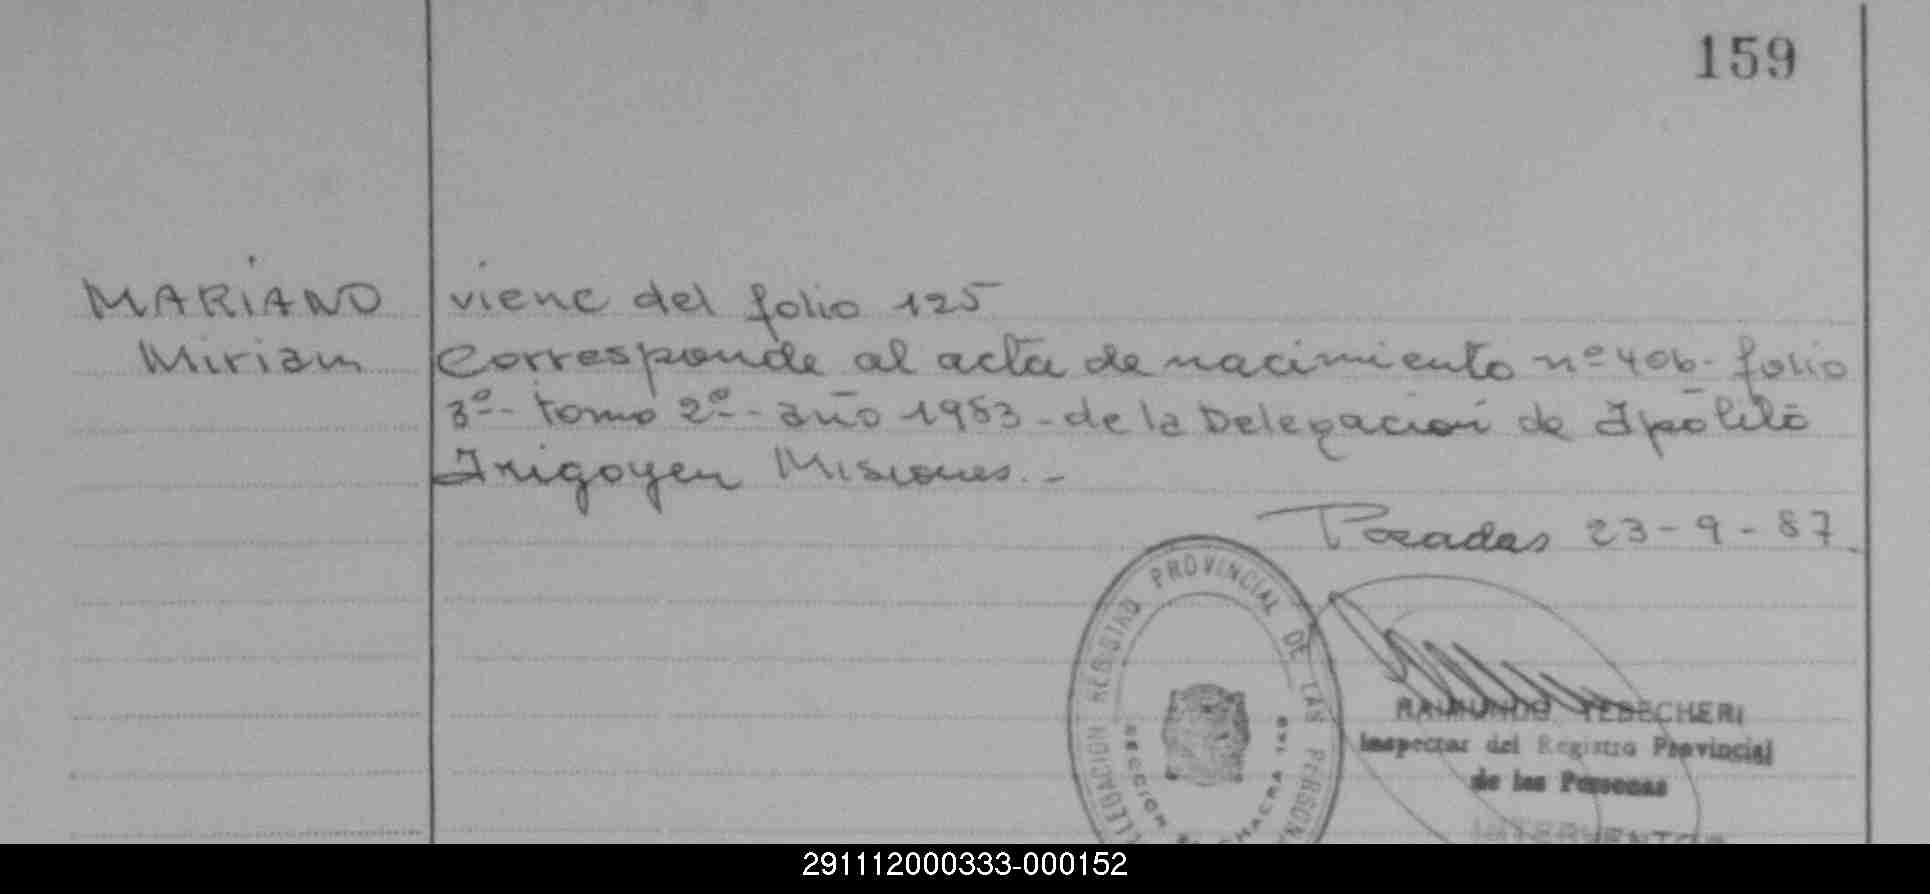 159
MARIANO viene del folio 125
Miriam Corresponde al acta de nacimiento nº 406 - folio
3º - tomo 2º - año 1983 - de la Delegación de Ipólito
Irigoyen Misiones. -
Posadas 23-9-87.
DELEGACION REGISTRO PROVINCIAL DE LAS PERSON
SECCION CHACRA 148
RAIMUNDO YEDECHERI
Inspector del Registro Provincial
de las Personas
INTERVENTOR
291112000333-000152